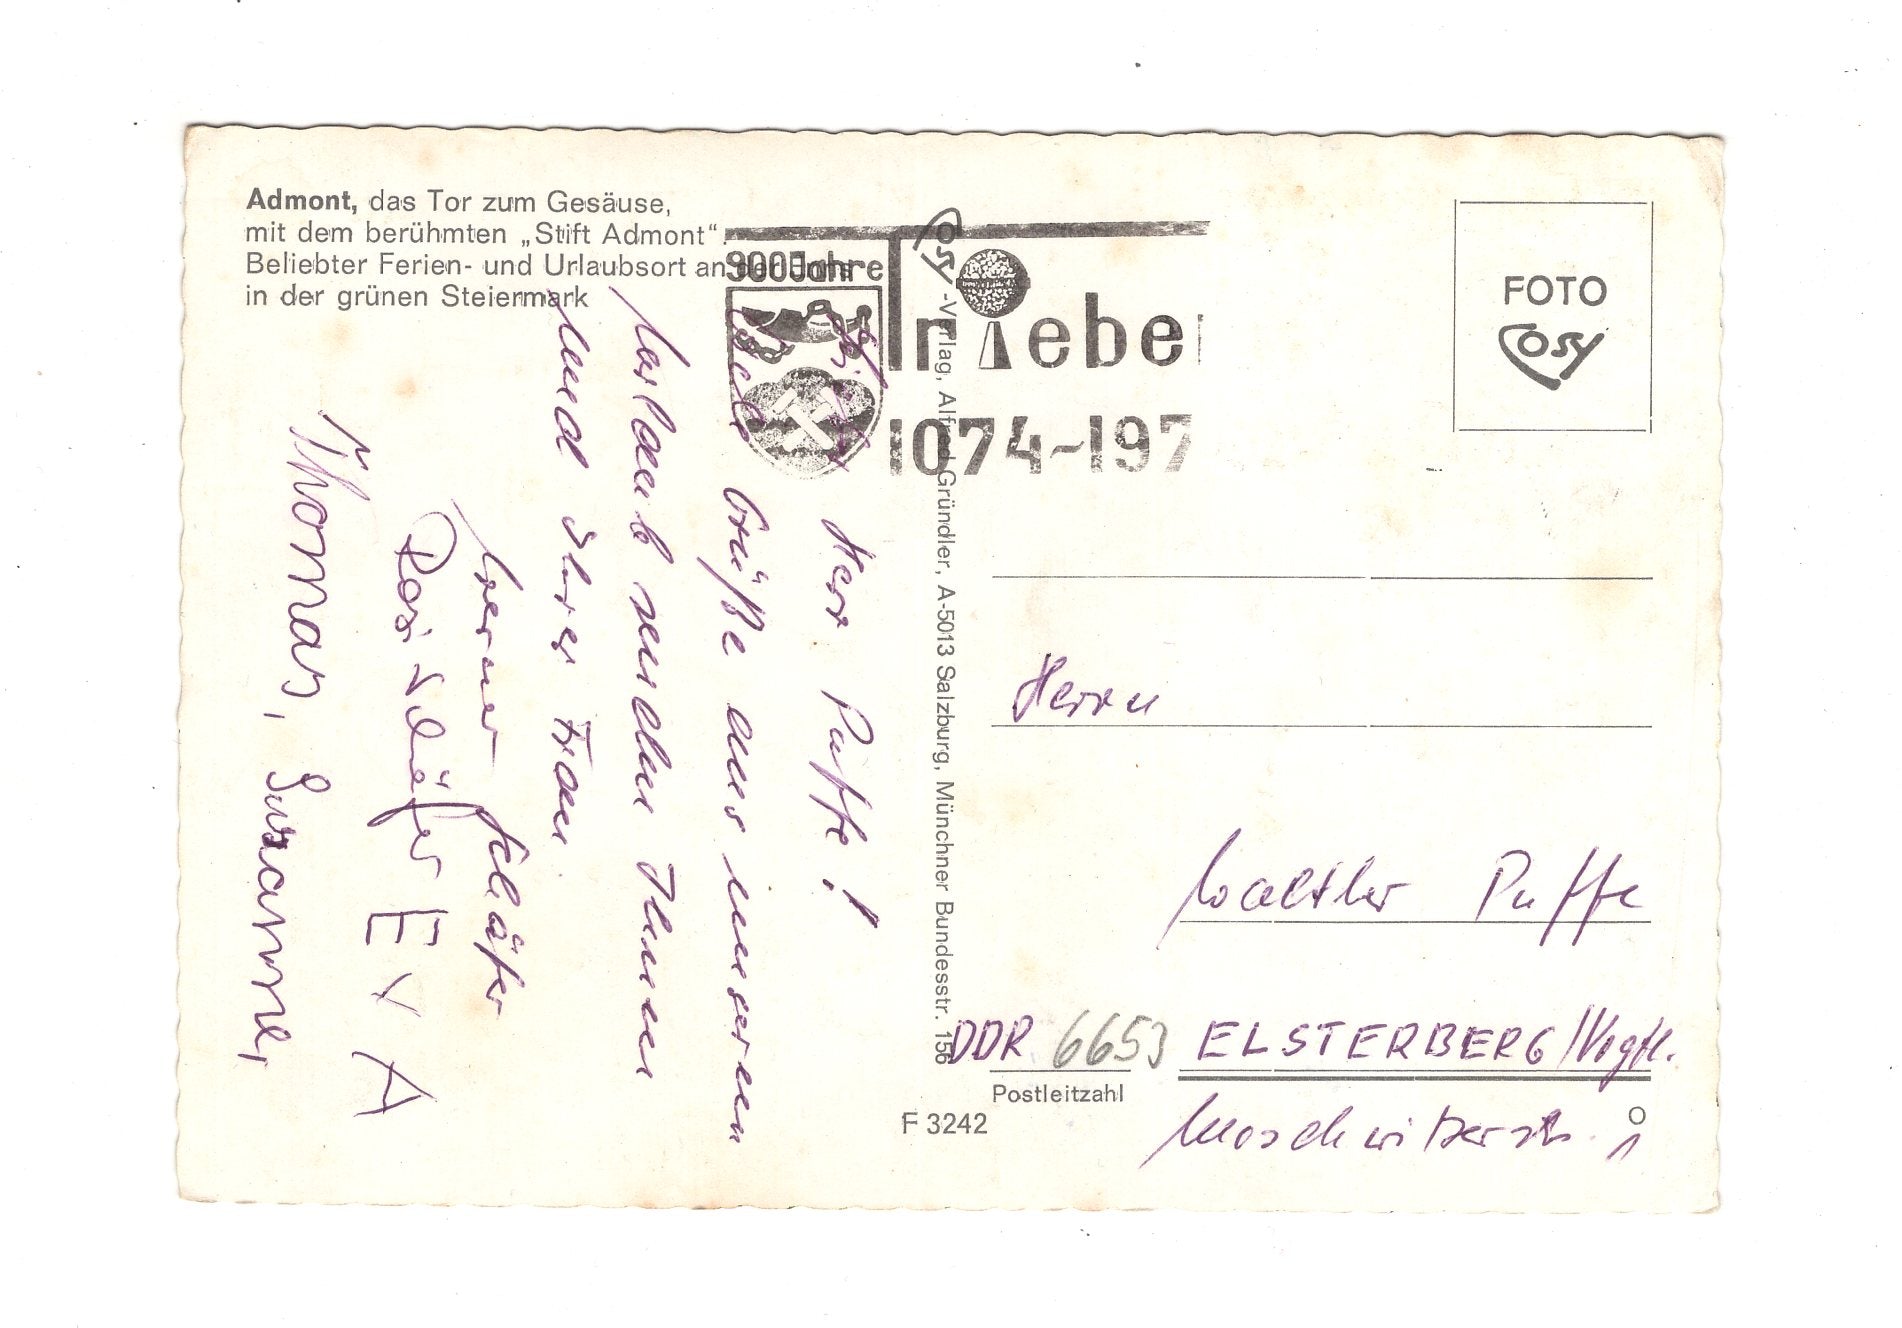 Admont, das Tor zum Gesäuse,
mit dem berühmten „Stift Admont“.
Beliebter Ferien- und Urlaubsort an der Enns
in der grünen Steiermark
900 Jahre
Triebe
1074-197
FOTO
Cosy
Cosy-Verlag, Alfred Gründler, A-5013 Salzburg, Münchner Bundesstr. 156
Herr Puffe!
Viele Grüße aus unseren
Urlaub senden Ihnen
und Ihrer Frau
Werner Schäfer
Rosi Schäfer EVA
Thomas, Susanne,
Herrn
Walther Puffe
DDR 6653 ELSTERBERG/Vogtl.
Postleitzahl
Moschwitzerstr. 1
F 3242